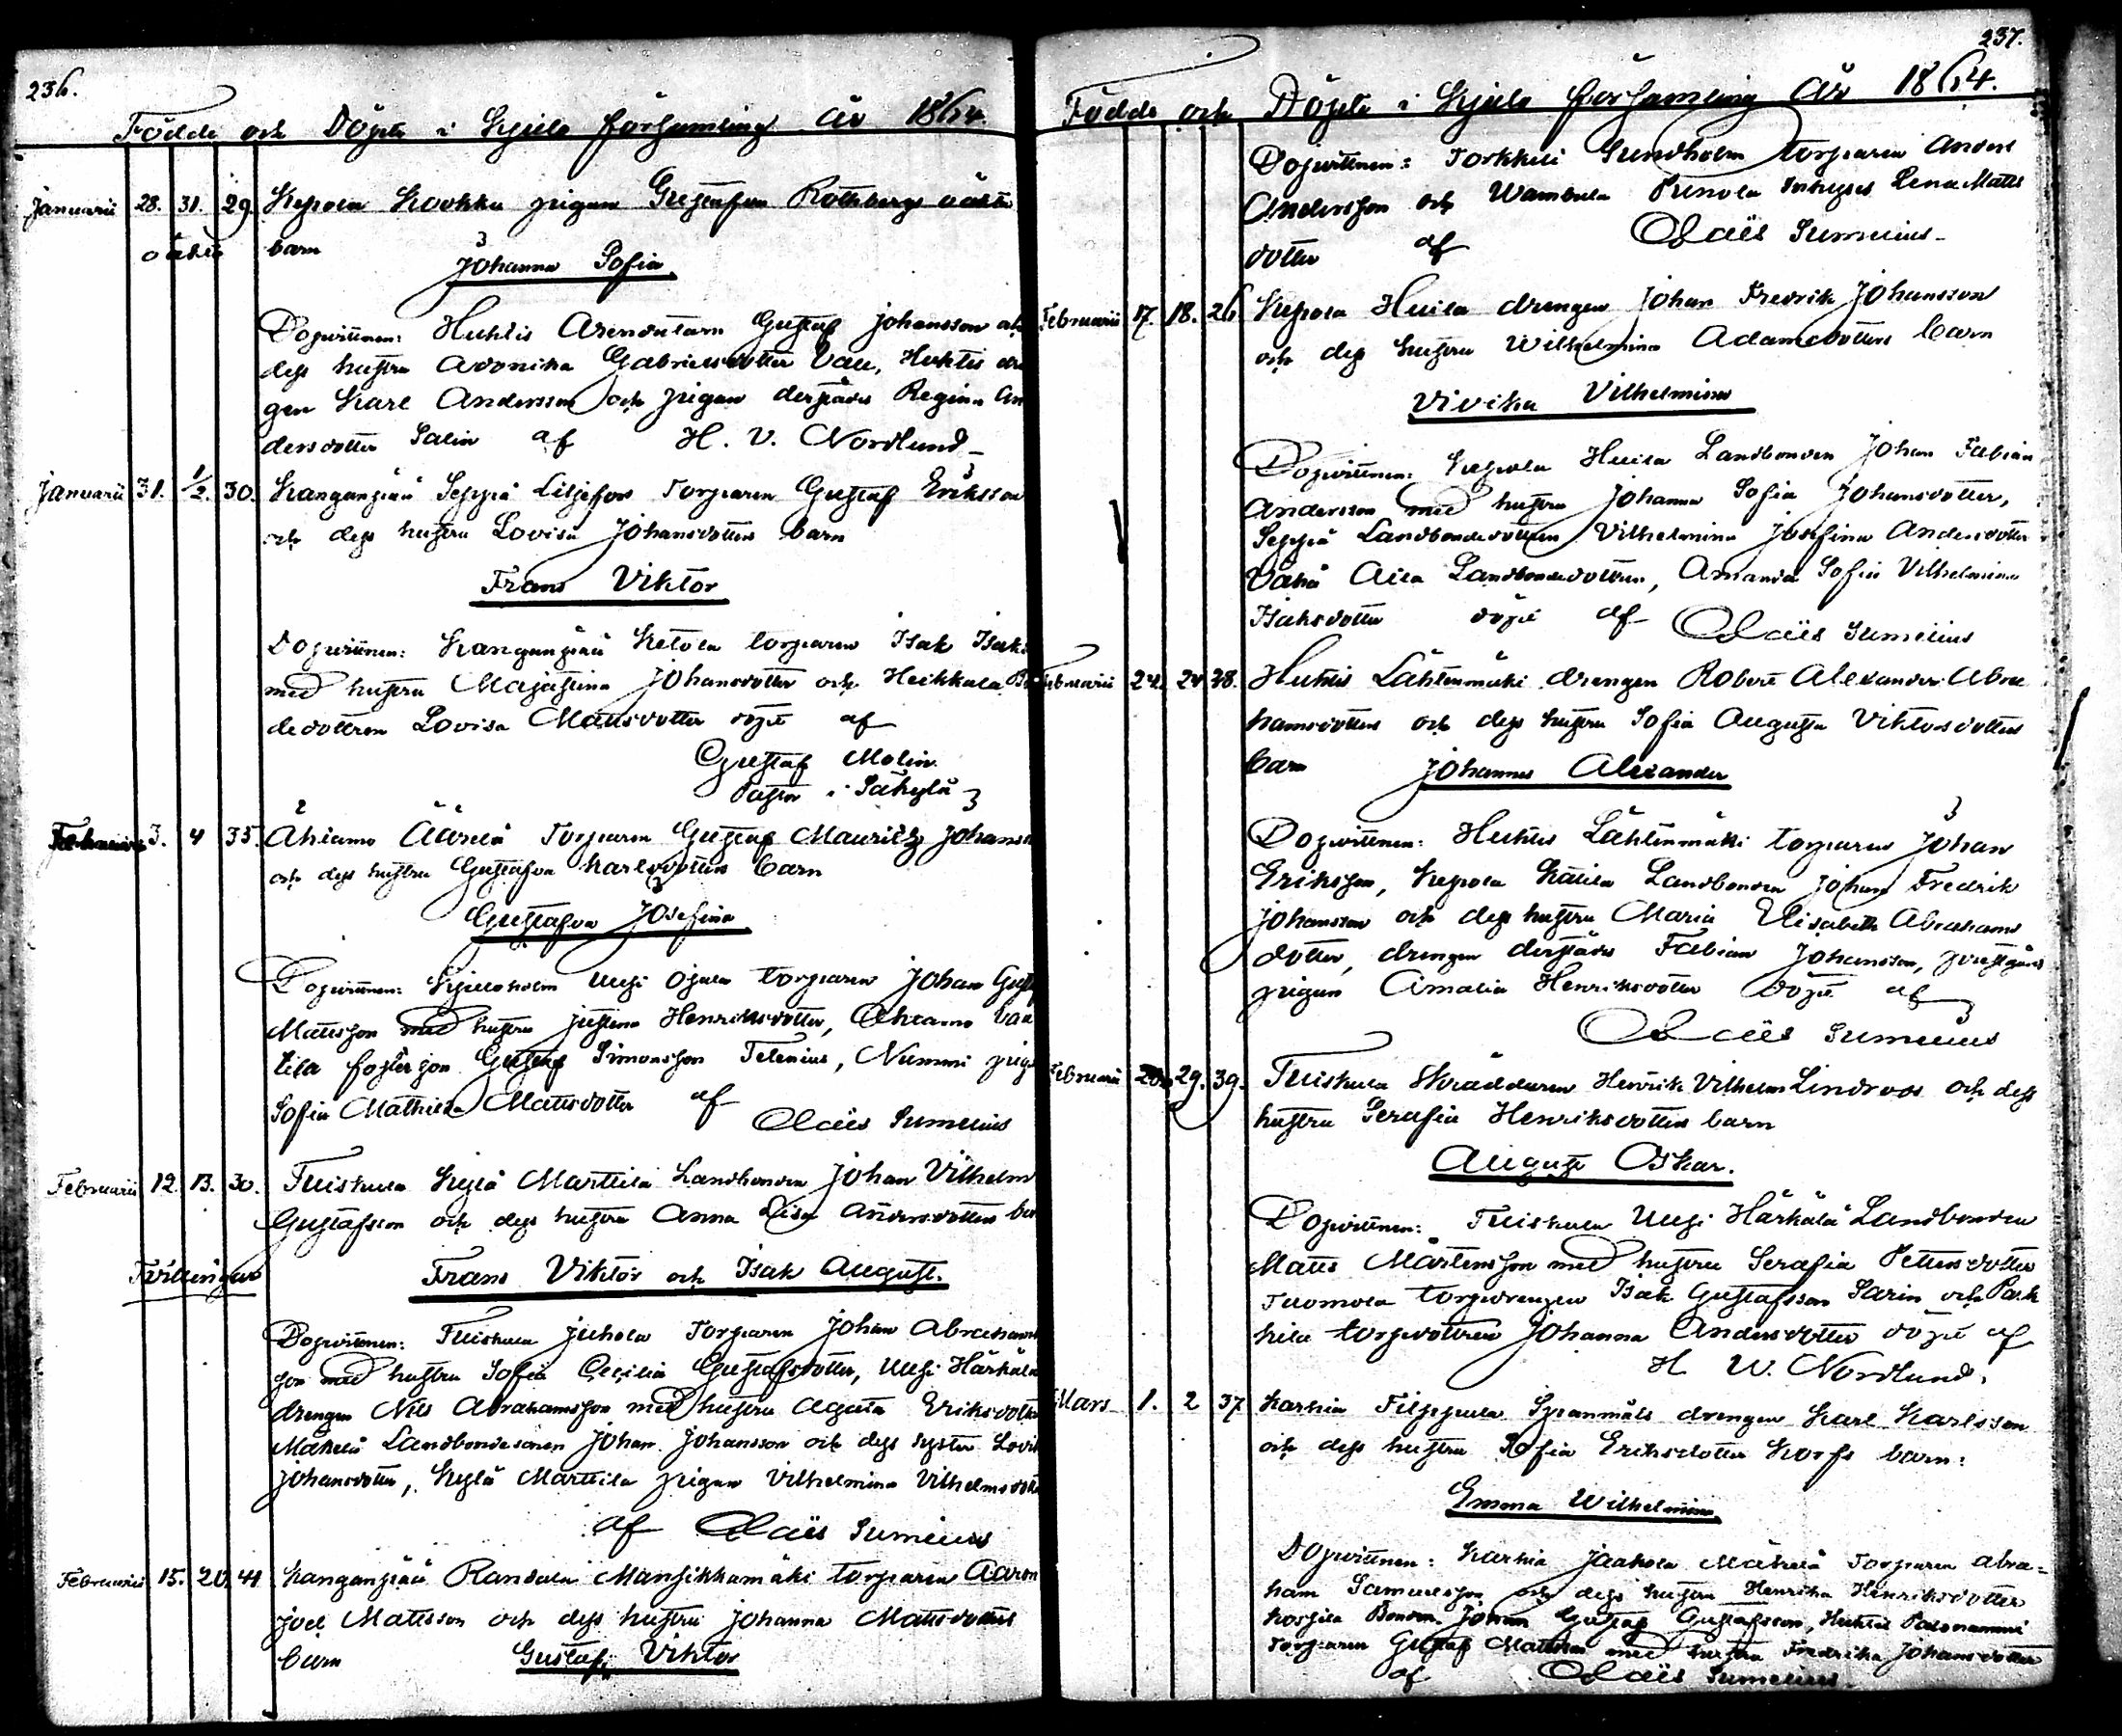 236.
Födde och Döpte i Kjulo församling år 1864.
Januarii 28. 31. 29. Kepola Kookka pigan Gustafva Rothbergs oäkta
oäkta barn
Johanna Sofia
Dopvittnen: Huhtis Arendatorn Gustaf Johansson
dess hustru Gabrielsdotter Huhtis
gen Karl Andersson och pigan derstädes Regina An
dersdotter Salin af H. V. Nordlund
Januarii 31. 1/2. 30. Kanganpää Seppä Liljefors Torparen Gustaf Eriksson
och dess hustru Lovisa Johansdotters barn
Frans Viktor
Dopvittnen: Kanganpää Ketola torparen Isak Isaks
med hustru Majastina Johansdotter och Heikkala
dedottren Lovisa Mattsdotter döpt af
Gustaf Molin
Pastor i Säkylä
3. 4 35. Torparen Gustaf Mauritz Johans
och dess hustru Gustafva Karlsdotters barn
Gustafva Josefina
Dopvittnen: Kjuloholm Uusi Ojala torparen Johan
Mattsson med hustru Justina Henriksdotter,
tila fosterson Gustaf Simonsson Telenius, Nummi
Sofia Mathilda Mattsdotter af Claës Sumelius
Februarii 12. 13. 30. Tuiskula Kylä Marttila Landbonden Johan Vilhelm
Gustafsson och dess hustru Anna Lisa Andersdotters
Tvillingar Frans Viktor och Isak August.
Dopvittnen: Tuiskula Juhola Torparen Johan Abrahams
son med hustru Sofia Cecilia Gustafsdotter, Uusi Härkälä
drengen Nils Abrahamsson med hustru Agata Eriksdotter
Mäkelä Landbondesonen Johan Johansson och dess syster
Johansdotter, Kylä Marttila pigan Vilhelmina Vilhelmsdott
af Claës Sumelius
Februarii 15. 20. 41 Kanganpää Ransula Mansikkamäki torparen Aaron
Joel Mattsson och dess hustru Johanna Mattsdotters
barn Gustaf Viktor
237.
Födde och Döpte i Kjulo församling år 1864.
Dopvittnen: Torkkeli Sundholm torparen Anders
Andersson och Wambula Lena Matts
dotter af Claës Sumelius
Februarii 17. 18. 26 Kepola Huila drengen Johan Fredrik Johansson
och dess hustru Wilhelmina Adamsdotters barn
Vivika Vilhelmina
Dopvittnen: Kepola Huila Landbonden Johan Fabian
Andersson med hustru Johanna Sofia Johansdotter,
Seppä Landbondedottren Vilhelmina Josefina Andersdotter
Landbondedottren, Amanda Sofia Vilhelmina
Isaksdotter döpt af Claës Sumelius
Februarii 24. 24 38. Huhtis Lähtenmäki drengen Robert Alexander Abra
hamsdotters och dess hustru Sofia Augusta Viktorsdotters
barn Johannes Alexander
Dopvittnen: Huhtis Lähtenmäki torparen Johan
Eriksson, Kepola Landbonden Johan Fredrik
Johansson och dess hustru Maria Elisabeth Abrahams
dotter, drengen derstädes Fabian Johansson, prestgårds
pigan Amalia Henriksdotter döpt af
Claës Sumelius
Februarii 29. 39. Tuiskula Skräddaren Henrik Vilhelm Lindroos och dess
hustru Serafia Henriksdotters barn
August Oskar.
Dopvittnen: Tuiskula Uusi Härkälä Landbonden
Matts Mårtensson med hustru Serafia Pettersdotter
Tuomola torpdrengen Isak Gustafsson Sarin och
torpdottren Johanna Andersdotter döpt af
H W. Nordlund.
Mars 1. 2 37 Karhia Filppula Spannmåls drengen Karl Karlsson
och dess hustru Sofia Eriksdotter Korfs barn:
Emma Wilhelmina
Dopvittnen: Karhia Jaakola Mäkelä Torparen Abra=
ham Samuelsson och dess hustru Henrika Henriksdotter
Bonden Johan Gustaf Gustafsson, Huhtis
Torparen Gustaf Mattsson med hustru Fredrika Johansdotter
af Claës Sumelius